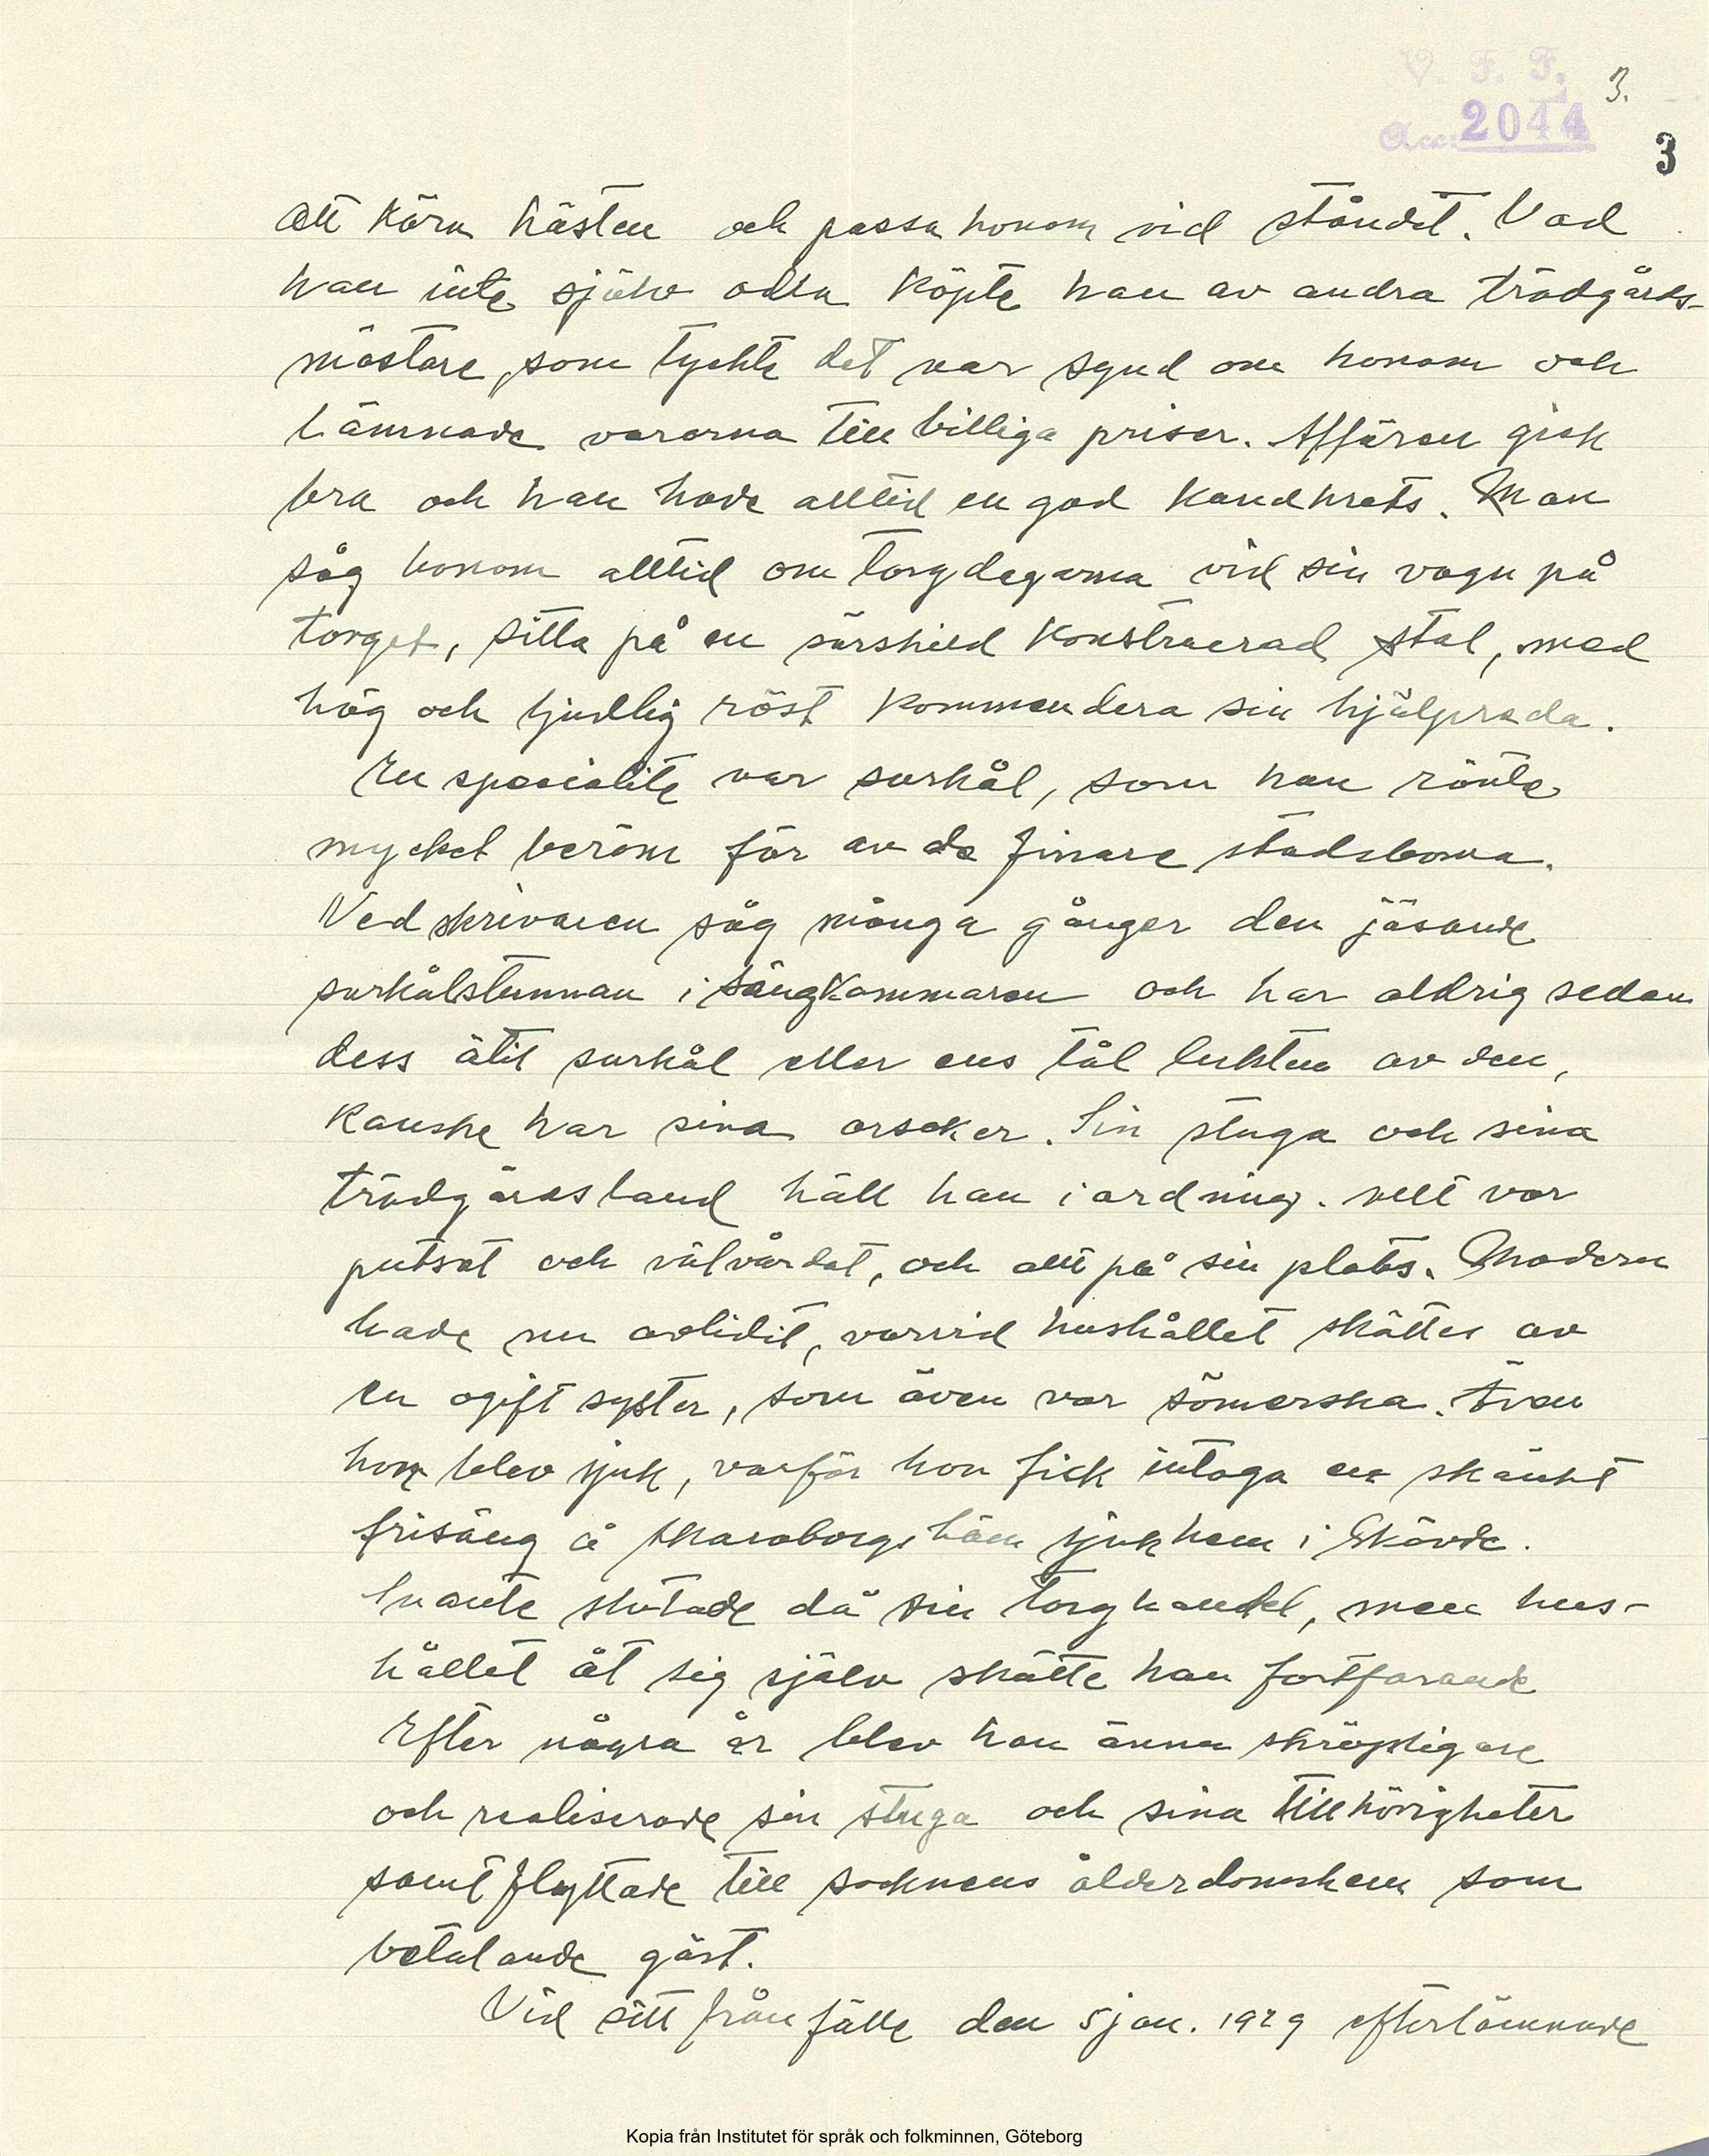 V. F. F.
3.
Acc: 2044
3
att köra hästen och passa honom vid ståndet. Vad
han inte själv odla köpte han av andra trädgårds-
mästare, som tyckte det var synd om honom och
lämnade varorna till billiga priser. Affären gick
bra och han hade alltid en god kundkrets. Man
såg honom alltid om torgdagarna vid sin vagn på
torget, sitta på en särskild konstruerad stol, med
hög och ljudlig röst kommendera sin hjälpreda.
En specialite var surkål, som han rönte
mycket beröm för av de finare stadsborna.
Nedskrivaren såg många gånger den jäsande
surkålstunnan i sängkammaren och har aldrig sedan
dess ätit surkål eller ens tål lukten av den,
kanske har sina orsaker. Sin stuga och sina
trädgårdsland höll han i ordning. allt var
putsat och välvårdat, och allt på sin plats. Modern
hade nu avlidit, varvid hushållet sköttes av
en ogift syster, som även var sömerska. Även
hon blev sjuk, varför hon fick intaga en skänkt
frisäng å Skaraborgs läns sjukhem i Skövde.
Svante slutade då sin torghandel, men hus-
hållet åt sig själv skötte han fortfarande
Efter några år blev han ännu skröpligare
och realiserade sin stuga och sina tillhörigheter
samt flyttade till socknens ålderdomshem som
betalande gäst.
Vid sitt frånfälle den 5 jan. 1929 efterlämnade
Kopia från Institutet för språk och folkminnen, Göteborg